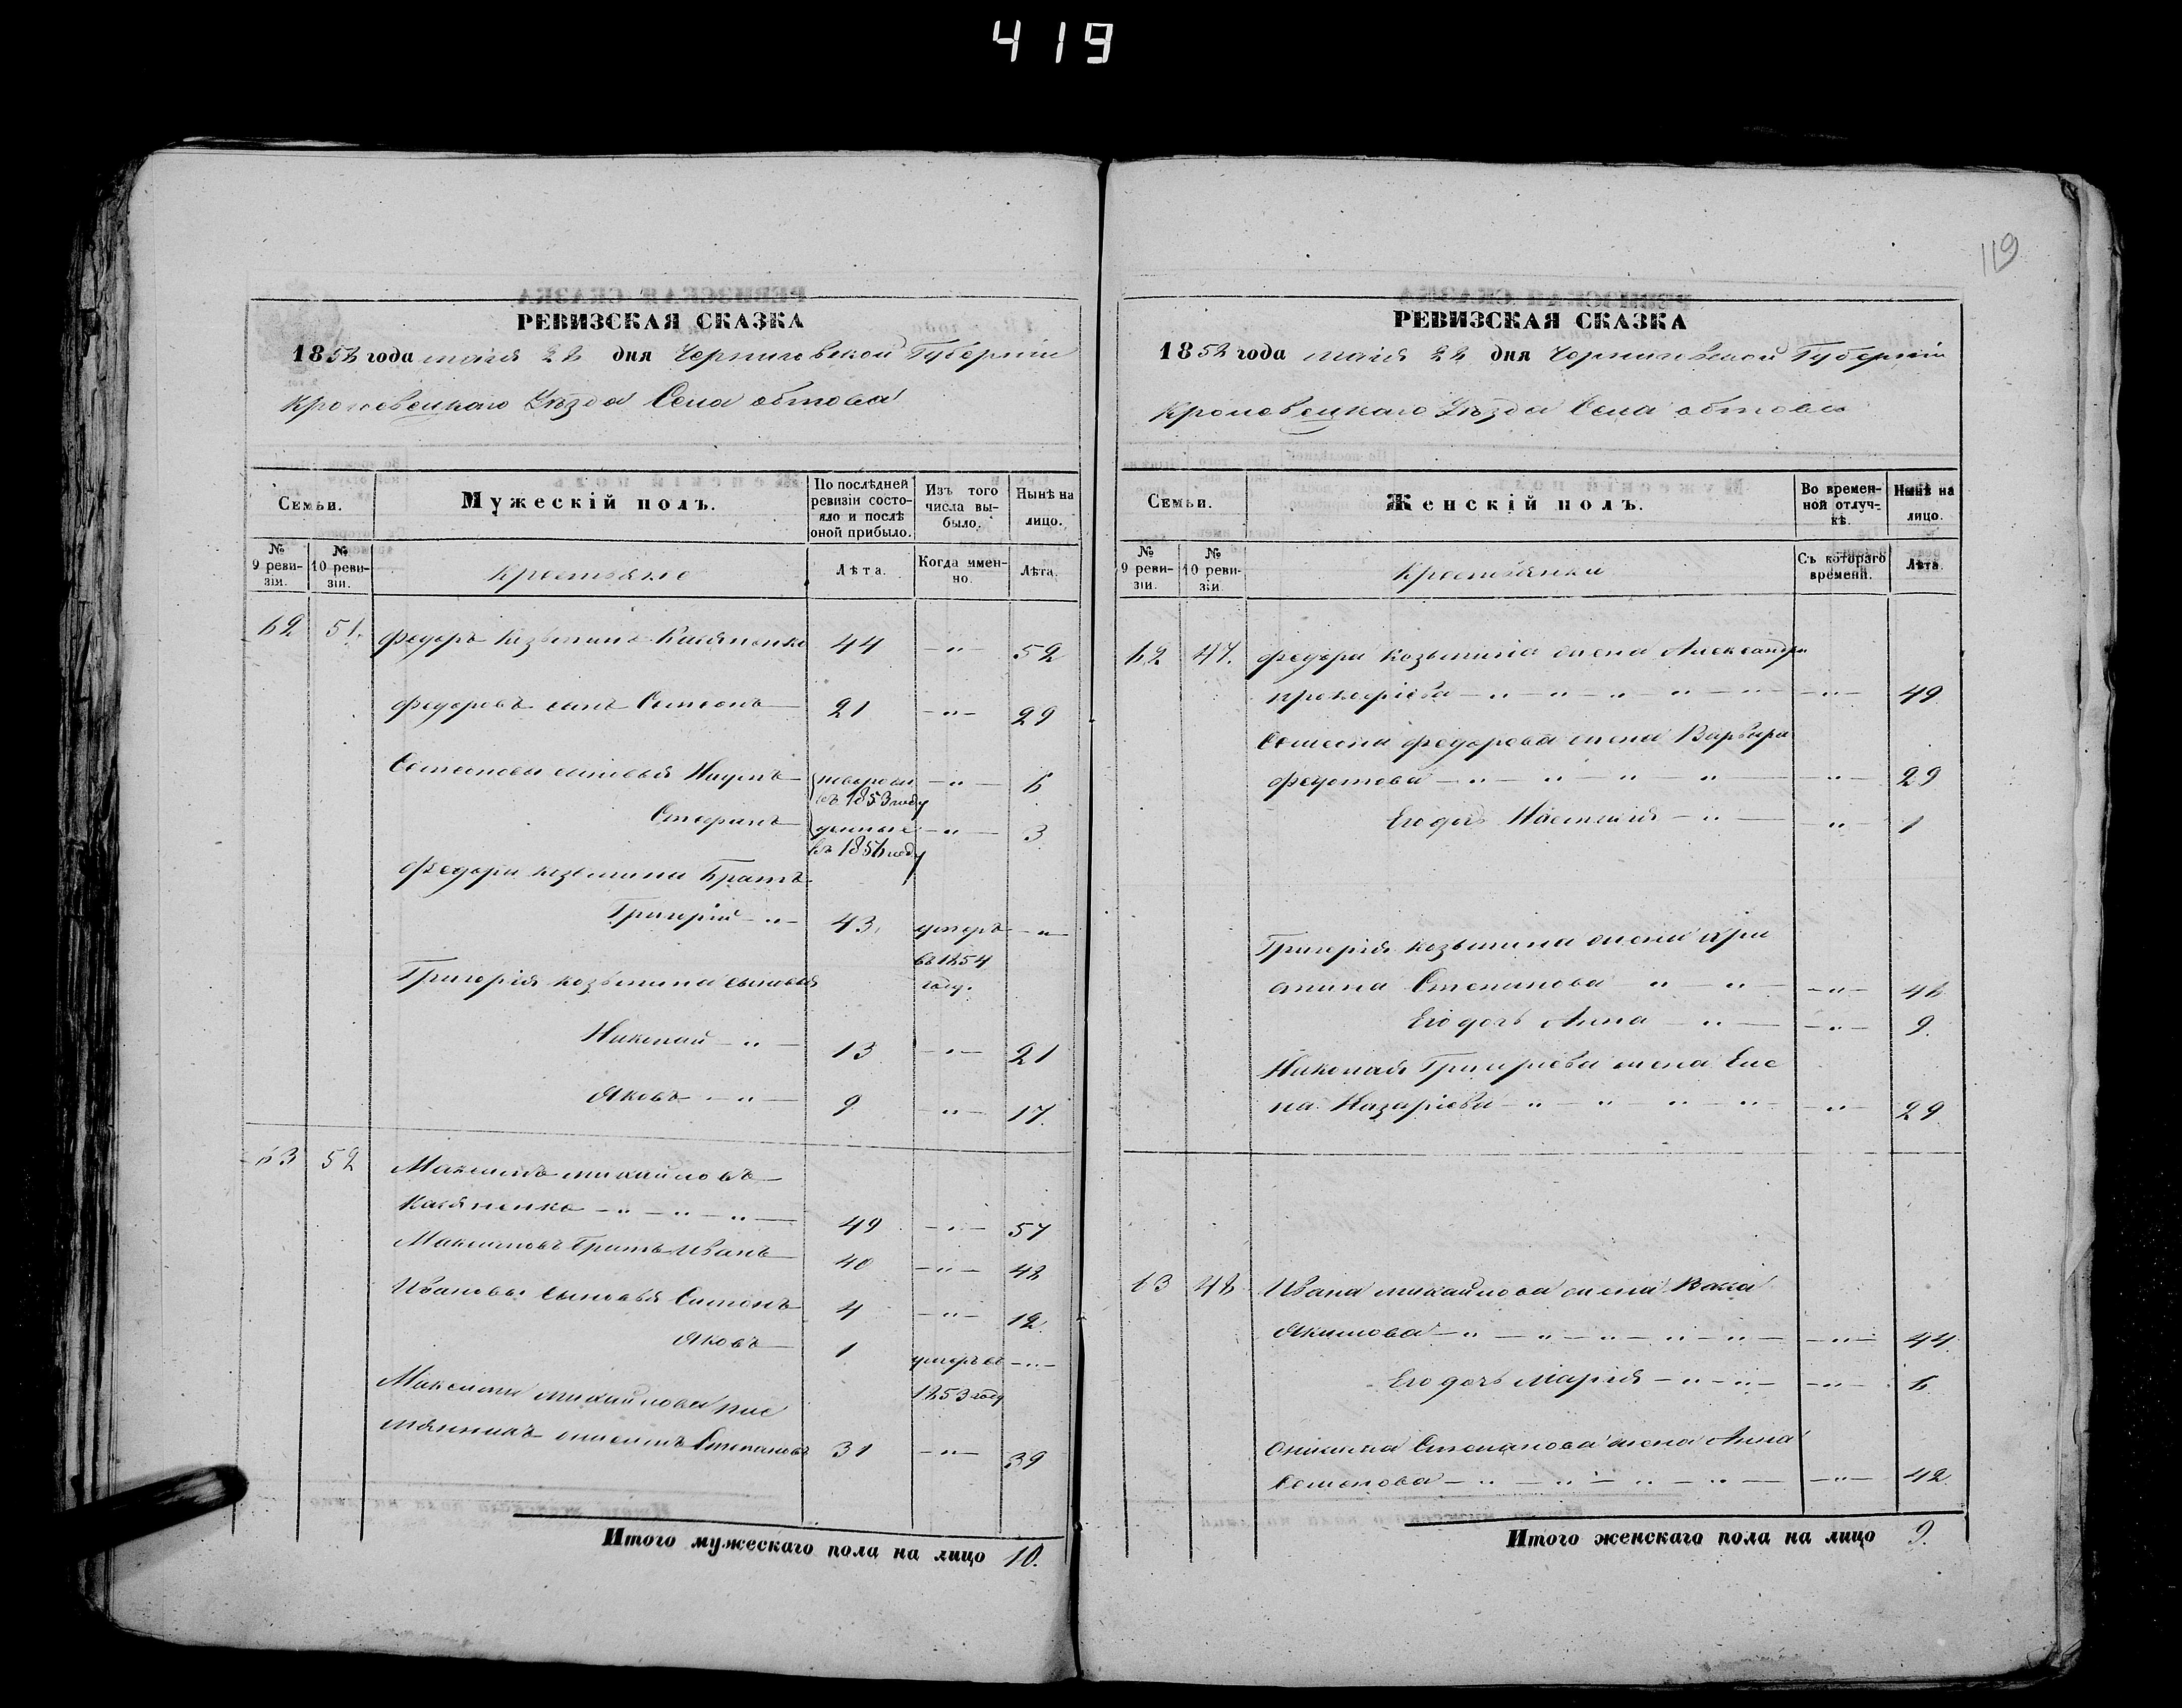 419
119
РЕВИЗСКАЯ СКАЗКА
1858 года маія 22 дня Черниговской Губерніи
Кролевецкаго Уѣзда Села обтова
Семьи.
Мужескій полъ.
По послѣдней ревизіи состо-
яло и послѣ оной прибыло.
Изъ того числа вы-
было.
Нынѣ на лицо.
№ 9 реви-
зіи.
№ 10 реви-
зіи.
Крестьяне
Лѣта.
Когда имен-
но.
Лѣта.
62 51. Федоръ Козьминъ Касяненко 44 — " — 52
Федоровъ сынъ Семенъ 21 — " — 29
Семеновы сыновья Наумъ новорож въ 1853 году — " — 6
Стефанъ денные въ 1856 году — " — 3
Федора козьмина Братъ
Григорій — " — 43 умеръ — " —
въ 1854
году.
Григорія козьмина сыновья
Николай — " — 13 — " — 21
Яковъ — " — 9 — " — 17.
63 52 Максимъ михайловъ
Касяненко — " — " — " — 49 — " — 57
Максимовъ Братъ Иванъ 40 — " — 48
Ивановы сыновья Симонъ 4 — " — 12.
Яковъ 1 умеръ въ — " —
1853 году
Максима михайлова пле
мянникъ Степановъ 31 — " — 39
Итого мужескаго пола на лицо 10.
РЕВИЗСКАЯ СКАЗКА
1858 года маія 22 дня Черниговской Губерніи
Кролевецкаго Уѣзда Села обтова
Семьи.
Женскій полъ.
Во времен-
ной отлуч-
кѣ.
Нынѣ на лицо.
№ 9 реви-
зіи.
№ 10 реви-
зіи
Крестьянки
Съ котораго времени.
Лѣта.
62 47. Федора Козьмина жена Александра
прокофіева — " — " — " — " — " — " — 49
Семена федорова жена Варвара
федотова — " — " — " — " — " — 29
Его дочь Настасія — " — " — 1
Григорія козьмина жена Хри
стина Степанова " — " — " — 46
Его дочь Анна — " — " — 9.
Николая Григорьева жена Еле
на Назаріева — " — " — " — " — " — 29.
63 48 Ивана михайлова жена Васса
Якимова — " — " — " — " — " — " — 44
Его дочь Марія — " — " — " — 6
Степанова жена Анна
Семенова — " — " — " — " — " — 42
Итого женскаго пола на лицо 9.